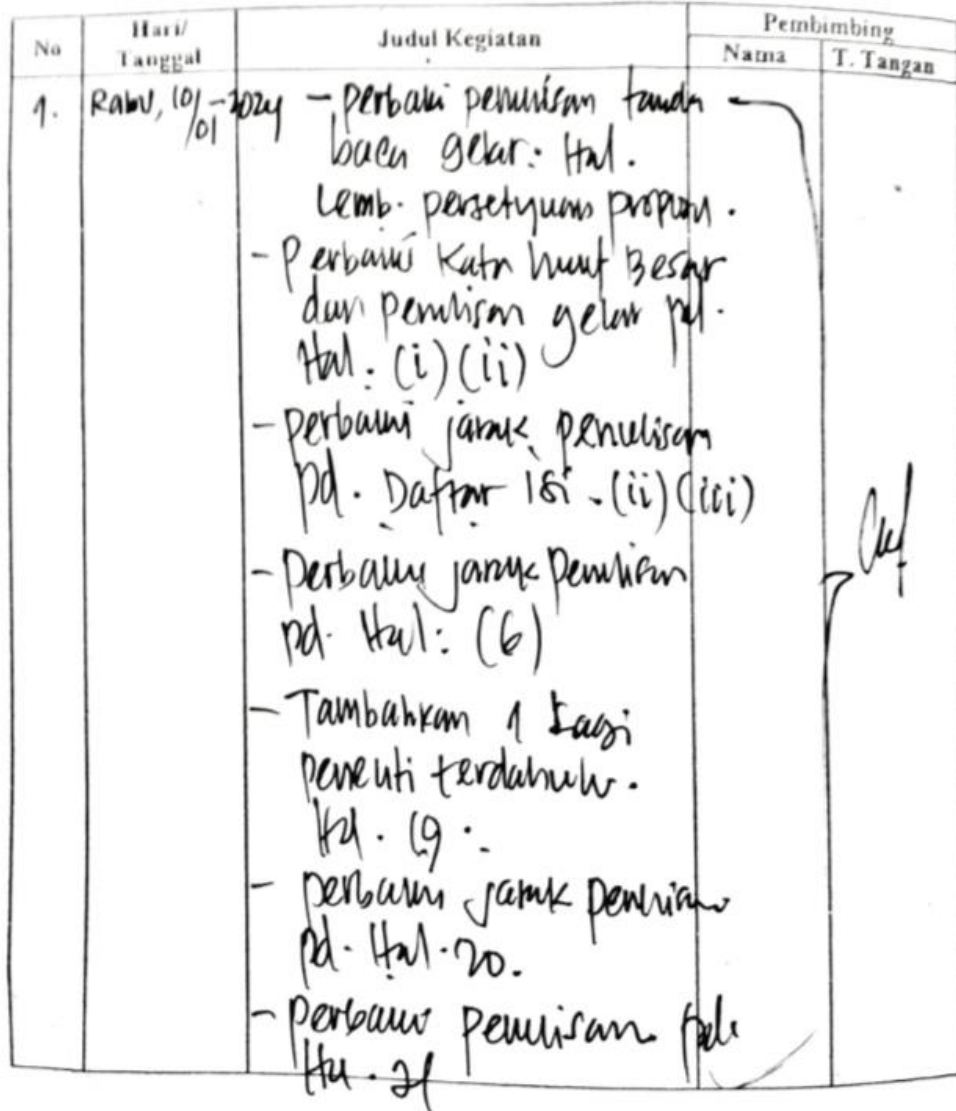 No
Hari/
Tanggal
Judul Kegiatan
Pembimbing
Nama
T. Tangan
1.
Rabu, 10/01-2024
- perbaiki penulisan tanda
baca gelar: Hal.
Lemb. persetujuan proposal.
- Perbaiki Kata huruf Besar
dan penulisan gelar pd.
Hal. (i) (ii)
- perbaiki jarak penulisan
pd. Daftar isi - (ii) (iii)
- perbaiki jarak penulisan
pd. Hal: (6)
- Tambahkan 1 Lagi
peneliti terdahulu.
Hal. 19 :
- perbaiki jarak penulisan
pd. Hal. 20.
- perbaiki penulisan pada
Hal. 21